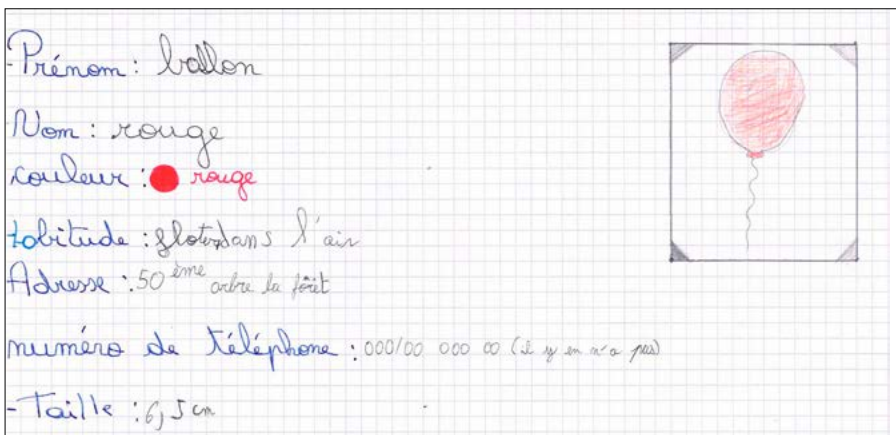 -Prénom: ballon
Nom: rouge
couleur: rouge
tobitude: floter dans l'air
Adresse: 50ème arbre la fôret
numéro de téléphone: 000/00 000 00 (il y en n'a pas)
- Taille: 6,5 cm